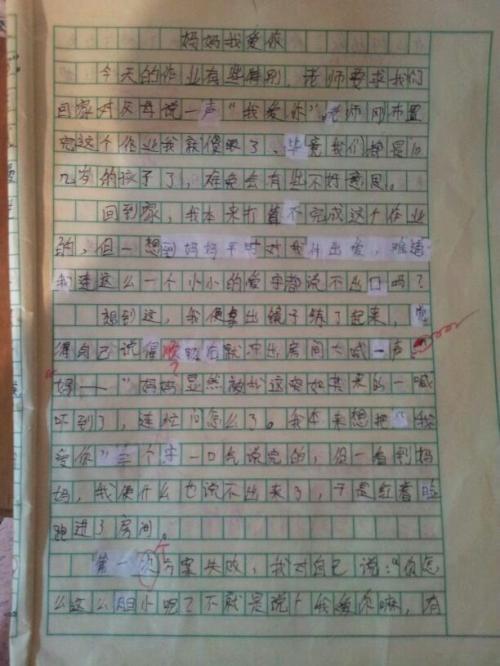 妈妈我爱你
今天的作业有些特别，老师要求我们
回家对父母说一声“我爱你”，老师刚布置
完这个作业我就傻眼了，毕竟我们都是十
几岁的孩子了，难免会有些不好意思。
回到家，我本来打算不完成这个作业
的，但一想到妈妈平时对我付出爱，难道
我连这么一个小小的爱字都说不出口吗？
想到这，我便拿出镜子练了起来，觉
得自己说得顺 后就冲出房间大喊一声
妈——”妈妈显然被我这突如其来的一喊
吓到了，连忙问怎么了。我本来想把“我
爱你”三个字一口气说完的，但一看到妈
妈，我便什么也说不出来了，于是红着脸
跑进了房间。
第一次方案失败，我对自己说：“你怎
么这么胆小呢？不就是说个我爱你嘛，有